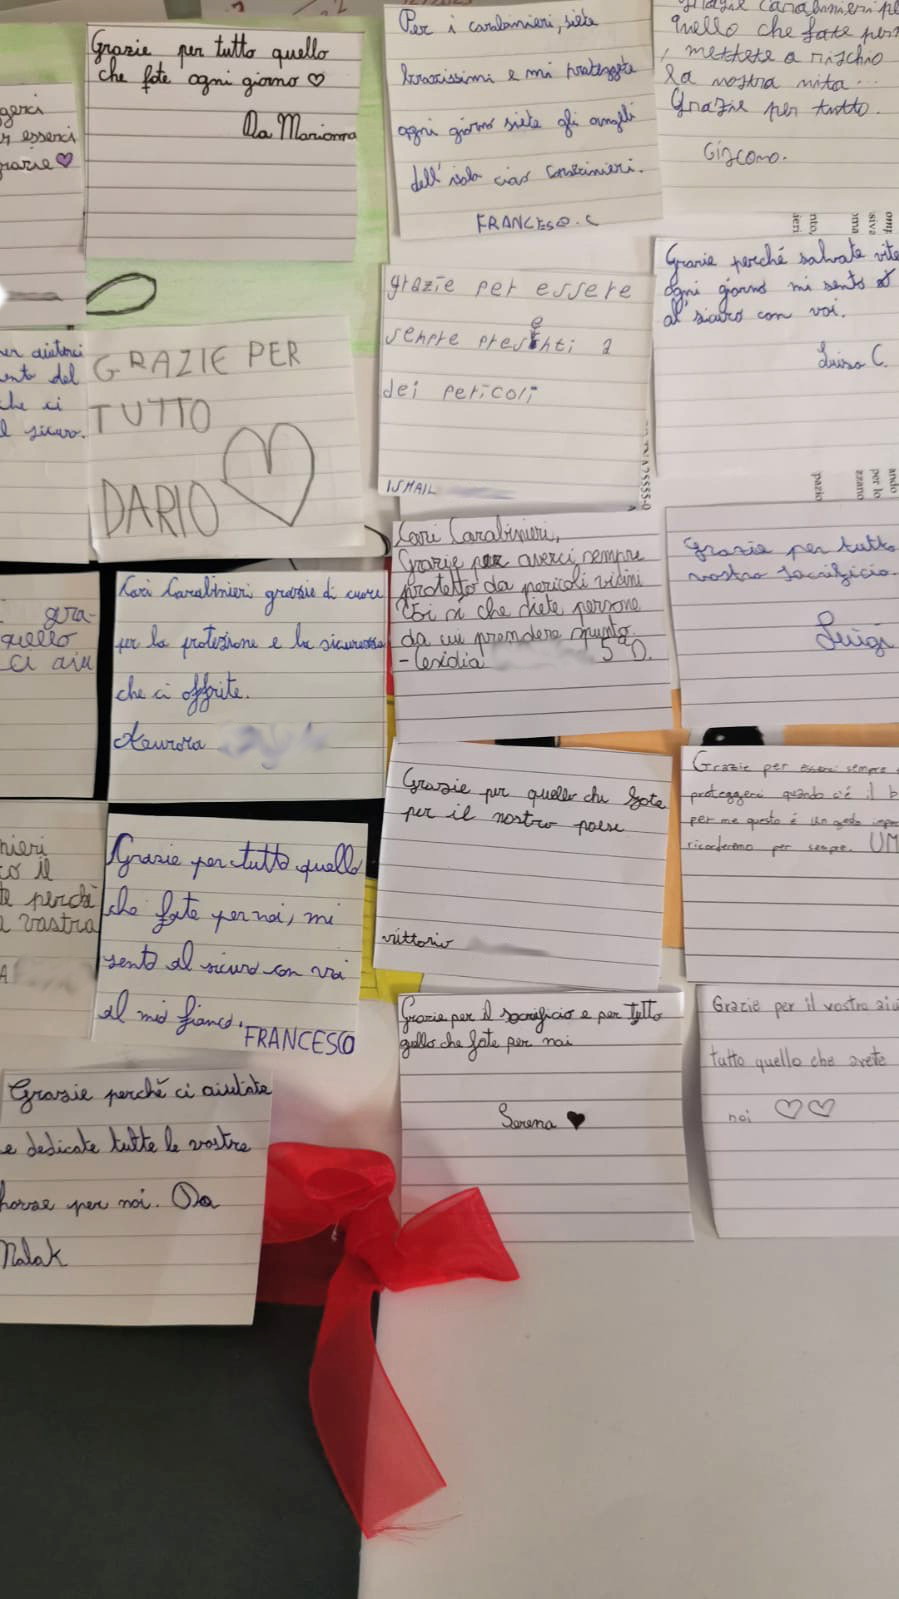 Grazie per tutto quello
che fate ogni giorno ♡
Da Marianna
Per i carabinieri, siete
bravissimi e mi proteggete
ogni giorno siete gli angeli
dell'isola ciao carabinieri.
FRANCESCO. C
Grazie carabinieri pe
quello che fate per
, mettete a rischio
la vostra vita...
Grazie per tutto.
Giacomo.
gerci
r esserci
razie ♡
grazie per essere
sempre presenti
e
dei pericoli
ISMAIL
Grazie perché salvate vite
ogni giorno mi sento
al sicuro con voi.
Luisa C.
er aiutarci
ento del
che ci
l sicuro.
GRAZIE PER
TUTTO
DARIO ♡
Cari Carabinieri,
Grazie per averci sempre
protetto da pericoli vicini
Voi si che siete persone
da cui prendere spunto.
- Cesidia 5 D.
Grazie per tutto
vostro sacrificio.
Luigi
gra-
quello
ci aiu
Cari Carabinieri grazie di cuore
per la protezione e la sicurezza
che ci offrite.
Aurora
Grazie per quello che fate
per il nostro paese
vittorio
Grazie per esserci sempre
proteggerci quando c'è il b
per me questo è un gesto impo
ricorderemo per sempre. UM
nieri
co il
te perché
a vostra
A
Grazie per tutto quello
che fate per noi, mi
sento al sicuro con voi
al mio fianco.
FRANCESCO
Grazie per il sacrificio e per tutto
quello che fate per noi
Serena ♥
Grazie per il vostro aiu
tutto quello che avete
noi ♡♡
Grazie perché ci aiutate
e dedicate tutte le vostre
forze per noi. Da
Malak